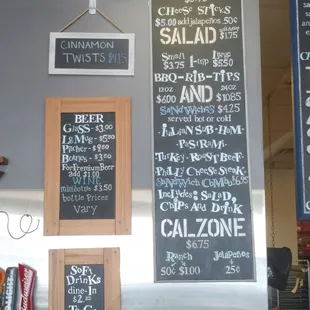 CINNAMON
TWISTS $1.75
BEER
GLASS - $3.00
LG MUG - $5.50
PITCHER - $9.50
BOTTLES - $3.50
FOR PREMIUM BEER
ADD $1.00
WINE
MINI BOTTLE $3.50
BOTTLE PRICES
VARY
SOFT
DRINKS
DINE-IN
$2.50
TO GO
CHEESE STICKS
$5.00 ADD JALAPEÑOS 50¢
SALAD
SMALL
$3.75
1-TRIP
LARGE
$5.50
BBQ-RIB-TIPS
12 OZ
$6.00
AND
24 OZ
$10.85
SANDWICHES $4.25
SERVED HOT OR COLD
ITALIAN SUB-HAM-
PASTRAMI-
TURKEY-ROAST BEEF-
PHILLY CHEESE STEAK
SANDWICH COMBO $6.95
INCLUDES: SALAD,
CHIPS AND DRINK
CALZONE
$6.75
RANCH
50¢ $1.00
JALAPEÑOS
25¢